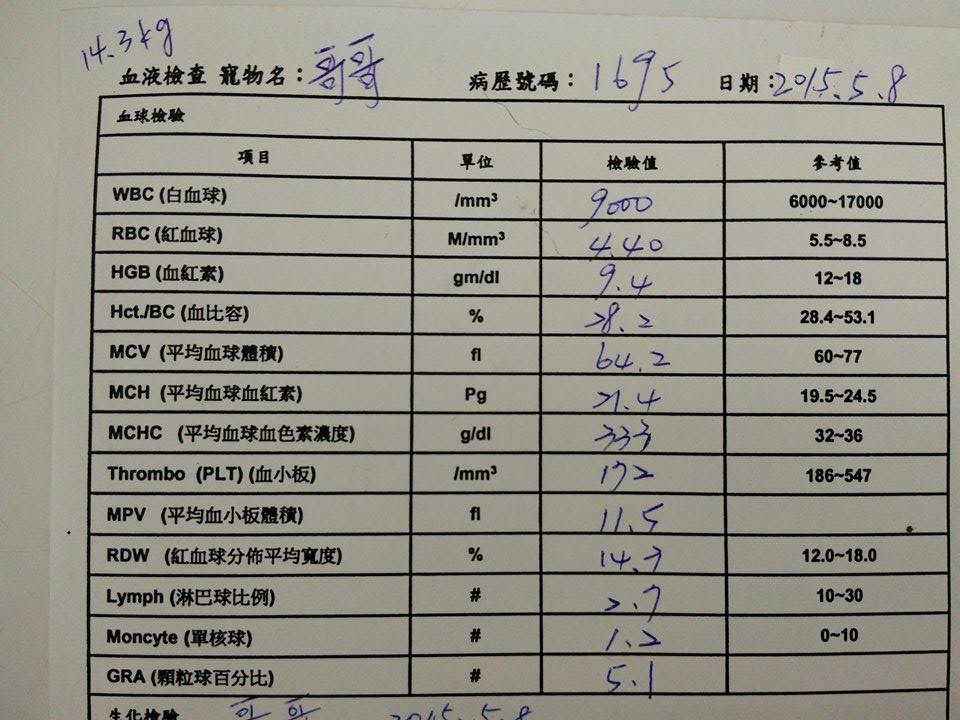 14.3kg
血液檢查 寵物名：哥哥 病歷號碼：1695 日期：2015.5.8
血球檢驗
項目 單位 檢驗值 參考值
WBC (白血球) /mm³ 9000 6000~17000
RBC (紅血球) M/mm³ 4.40 5.5~8.5
HGB (血紅素) gm/dl 9.4 12~18
Hct./BC (血比容) % 28.2 28.4~53.1
MCV (平均血球體積) fl 64.2 60~77
MCH (平均血球血紅素) Pg 21.4 19.5~24.5
MCHC (平均血球血色素濃度) g/dl 333 32~36
Thrombo (PLT) (血小板) /mm³ 172 186~547
MPV (平均血小板體積) fl 11.5
RDW (紅血球分佈平均寬度) % 14.7 12.0~18.0
Lymph (淋巴球比例) # 2.7 10~30
Moncyte (單核球) # 1.2 0~10
GRA (顆粒球百分比) # 5.1
生化檢驗 哥哥 2015.5.8